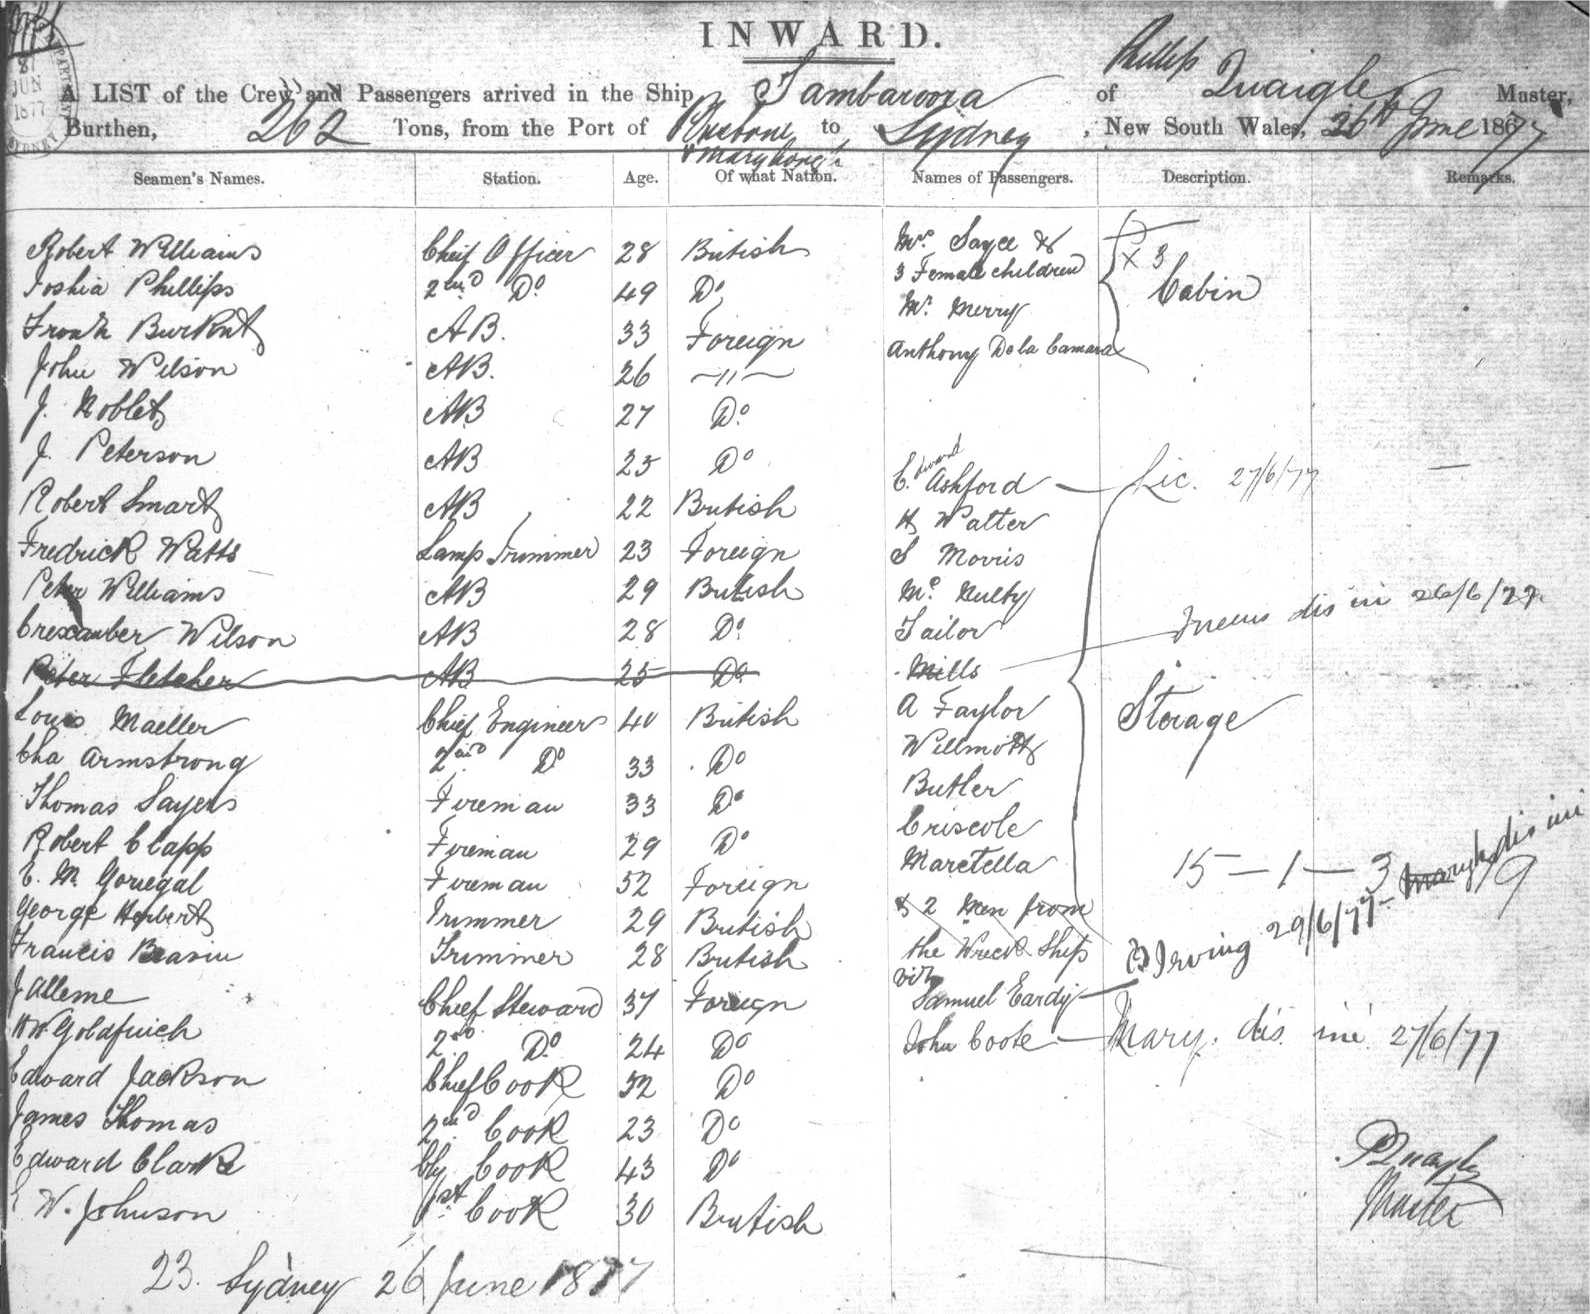 INWARD.
A LIST of the Crew and Passengers arrived in the Ship Tambaroora of Phillip Quaigle, Master,
Burthen, 262 Tons, from the Port of Brisbane & Marybong'h to Sydney, New South Wales, 26th June 1877
Seamen's Names. Station. Age. Of what Nation. Names of Passengers. Description. Remarks.
Robert Williams Cheif Officer 28 British Mrs. Sayce &
3 Female children X 3
Joshia Phillips 2nd Do. 49 Do Mr. Merry Cabin
Frank AB. 33 Foreign Anthony De la Camara
John Wilson AB. 26 〃
J. Noblet AB 27 Do
J. Peterson AB 25 Do Edward Ashford Lic. 27/6/77
Robert Smart AB 22 British H Walter
Fredrick Watts Lamp Trimmer 23 Foreign S Morris
Peter Williams AB 29 British Mc. Nulty
Wilson AB 28 Do. Tailor
Peter Fletcher AB 25 Do Mills dis in 26/6/77
Louis Maeller Chief Engineer 40 British A Taylor Storage
Cha Armstrong 2nd Do 33 Do Willmott
Thomas Sayers Fireman 33 Do Butler
Robert Clapp Fireman 29 Do Criscole
E. M. Gonegal Fireman 52 Foreign Maretella 15 — 1 — 3
George Herbert Trimmer 29 British & 2 Men from
Francis Trimmer 28 British the Wreck Ship
Irving 29/6/77 Maryh dis in
J Alleme Chief Steward 37 Foreign Samuel Eardy
Wm Goldfinch 2nd Do. 24 Do John Coote Mary. dis. in 27/6/77
Edward Jackson Chief Cook 52 Do
James Thomas 2nd Cook 23 Do
Edward Clarke Cook 43 Do
W. Johnson 1st Cook 30 British
P Quayle
Master
23. Sydney 26 June 1877